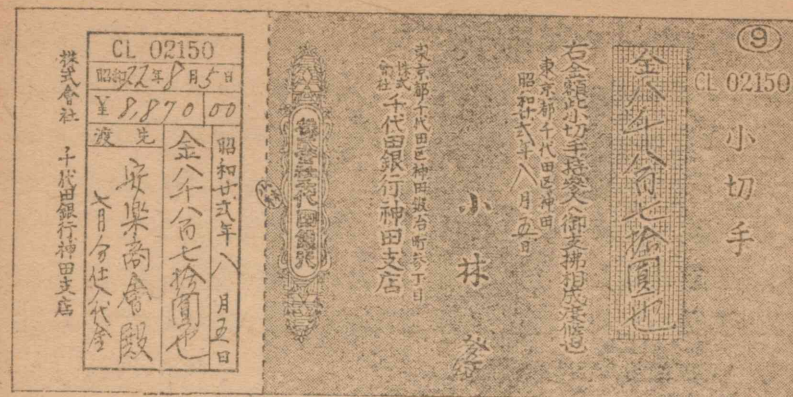 ⑨
CL 02150
小切手
金八千八百七拾圓也
右金額此小切手持參人へ御支拂相成度候也
東京都千代田區神田
昭和廿弐年八月五日
小林
東京都千代田區神田鍛冶町参丁目
株式會社 千代田銀行神田支店
CL 02150
昭和22年8月5日
¥ 8,870 00
昭和廿弐年八月五日
金八千八百七拾圓也
渡先
安楽商會殿
七月分仕入代金
株式會社 千代田銀行神田支店